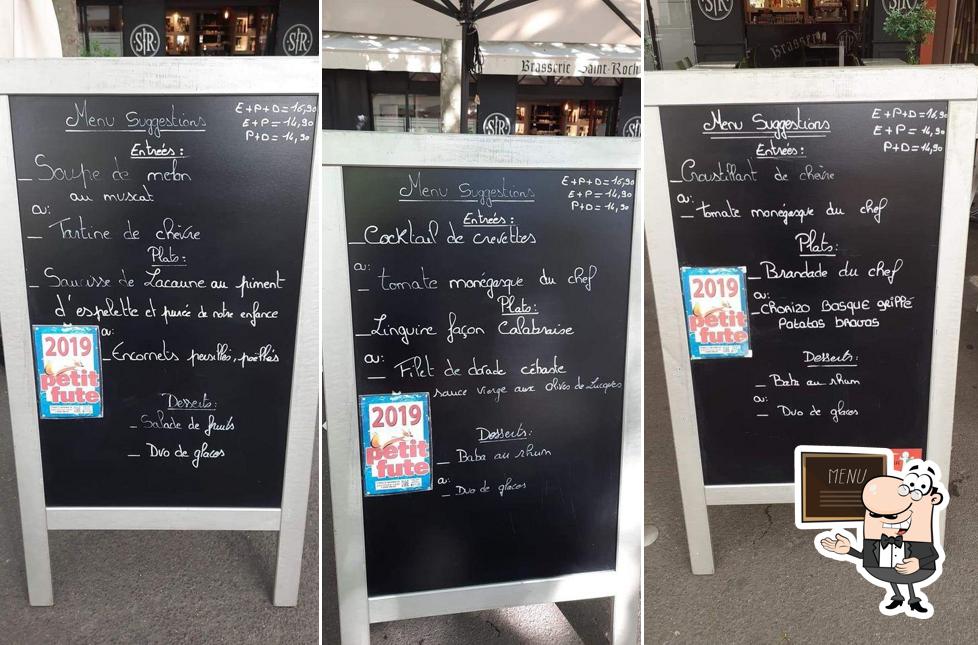 SR
SR
Menu Suggestions
E+P+D=16,90
E+P=14,90
P+D=14,90
Entrées:
_ Soupe de melon
au muscat
ou:
_ Tartine de chèvre
Plats:
_ Saucisse de Lacaune au piment
d'espelette et purée de notre enfance
ou:
_ Encornets persillés, poêllés
2019
petit
fute
Desserts:
_ Salade de fruits
_ Duo de glaces
Brasserie Saint-Roch
SR
Menu Suggestions
E+P+D=16,90
E+P=14,90
P+D=14,90
Entrées:
_ Cocktail de crevettes
ou:
_ tomate monégasque du chef
Plats:
_ Linguine façon Calabraise
ou:
_ Filet de dorade cébaste
sauce vierge aux olives de Lucques
2019
petit
fute
Desserts:
_ Baba au rhum
ou:
_ Duo de glaces
SR
SR
Brasserie
Menu Suggestions
E+P+D=16,90
E+P=14,90
P+D=14,90
Entrées:
_ Croustillant de chèvre
ou:
_ tomate monégasque du chef
Plats:
_ Brandade du chef
ou:
_ CHORIZO BASQUE GRIPPÉ
PATATAS BRAVAS
2019
petit
fute
Desserts:
_ Baba au rhum
ou:
_ Duo de glaces
MENU